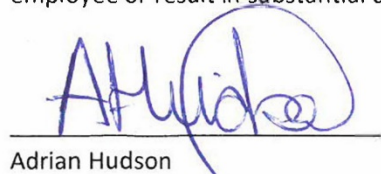 employee or result in substantial
Adrian Hudson